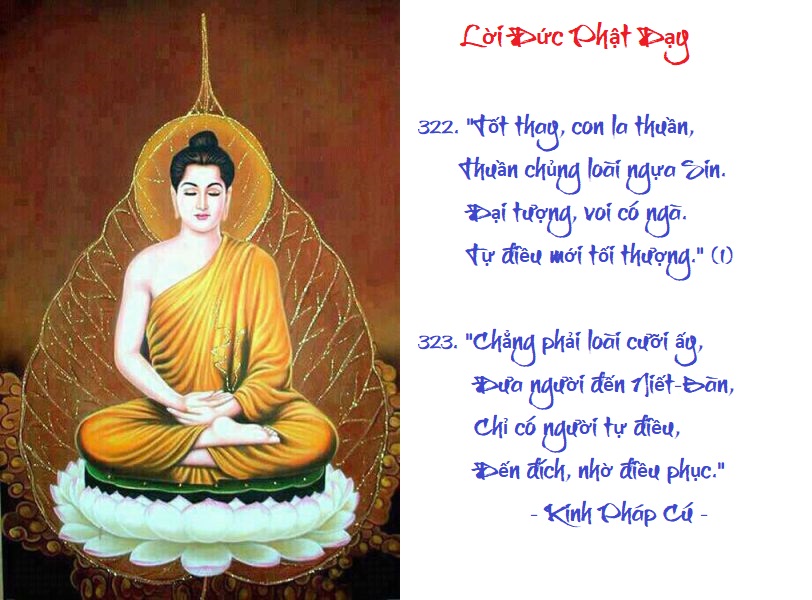 Lời Đức Phật Dạy
322. "Tốt thay, con la thuần,
Thuần chủng loài ngựa Sin.
Đại tượng, voi có ngà.
Tự điều mới tối thượng." (1)
323. "Chẳng phải loài cưỡi ấy,
Đưa người đến Niết-Bàn,
Chỉ có người tự điều,
Đến đích, nhờ điều phục."
- Kinh Pháp Cú -